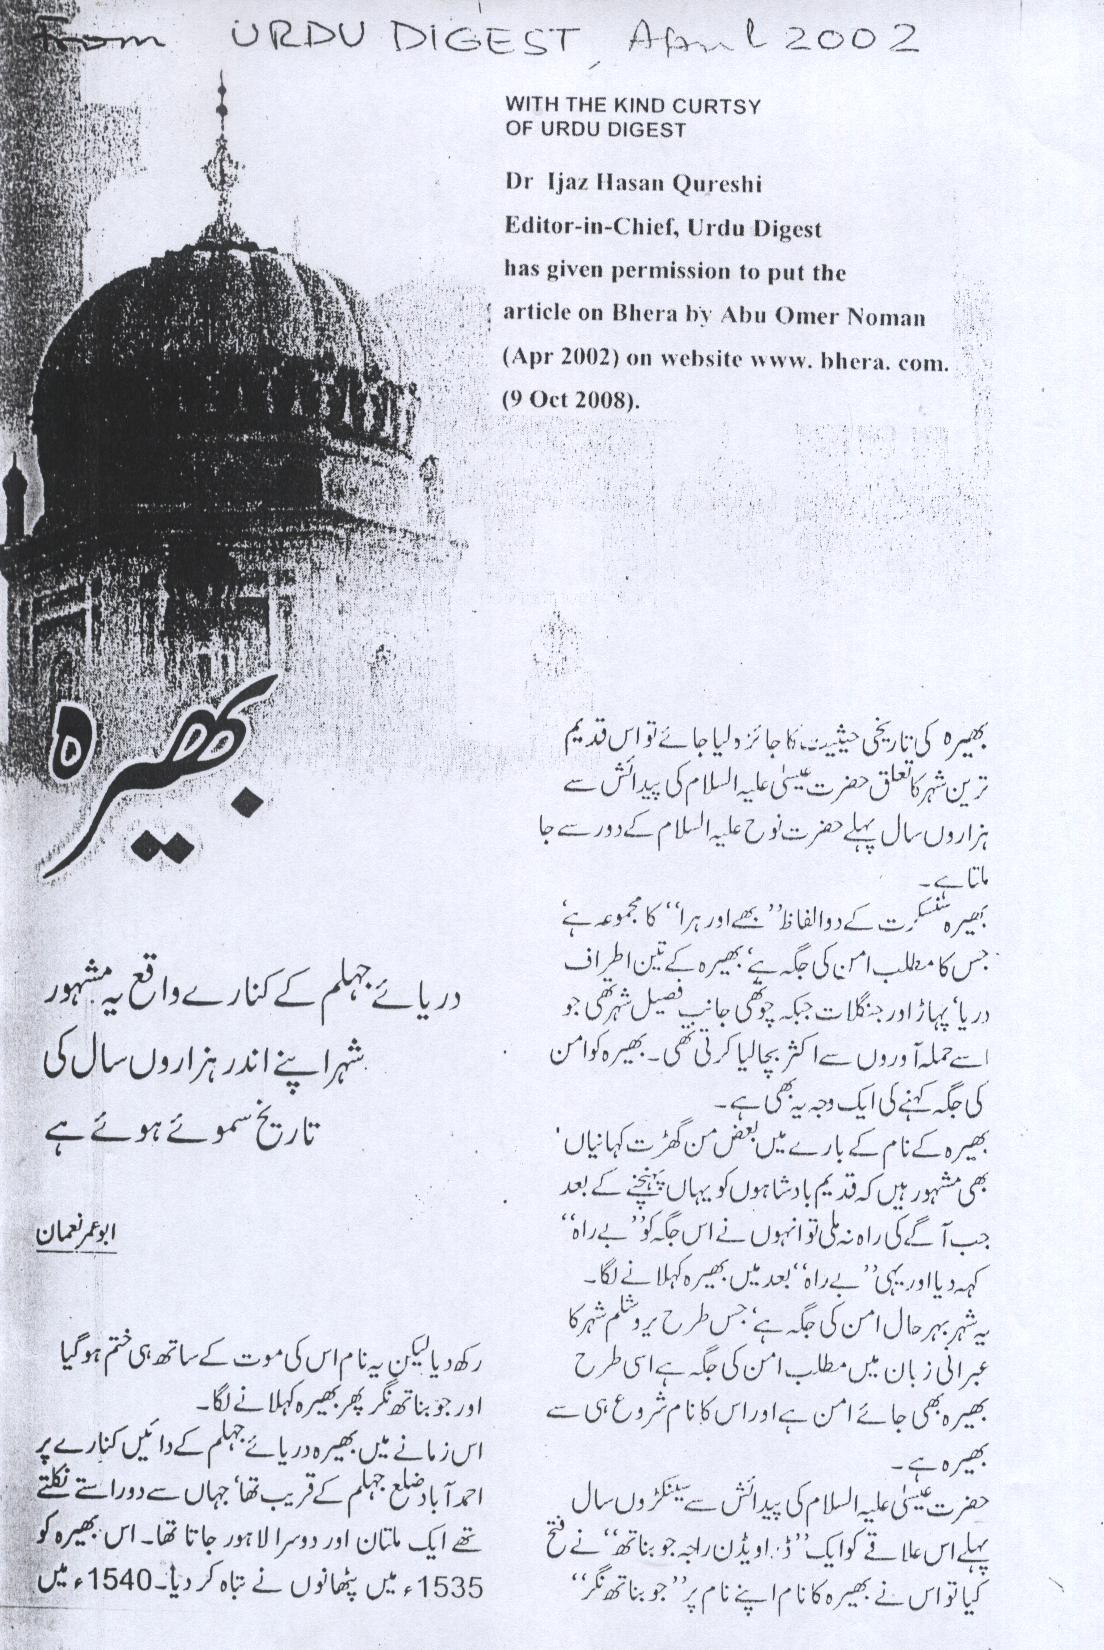 From URDU DIGEST, April 2002
WITH THE KIND CURTSY
OF URDU DIGEST
Dr Ijaz Hasan Qureshi
Editor-in-Chief, Urdu Digest
has given permission to put the
article on Bhera by Abu Omer Noman
(Apr 2002) on website www. bhera. com.
(9 Oct 2008).
بھیرہ
دریائے جہلم کے کنارے واقع یہ مشہور
شہر اپنے اندر ہزاروں سال کی
تاریخ سموئے ہوئے ہے
ابو عمر نعمان
بھیرہ کی تاریخی حیثیت کا جائزہ لیا جائے تو اس قدیم
ترین شہر کا تعلق حضرت عیسیٰ علیہ السلام کی پیدائش سے
ہزاروں سال پہلے حضرت نوح علیہ السلام کے دور سے جا
ملتا ہے۔
بھیرہ سنسکرت کے دو الفاظ ”بھے اور ہرا“ کا مجموعہ ہے‘
جس کا مطلب امن کی جگہ ہے‘ بھیرہ کے تین اطراف
دریا‘ پہاڑ اور جنگلات جبکہ چوتھی جانب فصیل شہر تھی جو
اسے حملہ آوروں سے اکثر بچا لیا کرتی تھی۔ بھیرہ کو امن
کی جگہ کہنے کی ایک وجہ یہ بھی ہے۔
بھیرہ کے نام کے بارے میں بعض من گھڑت کہانیاں
بھی مشہور ہیں کہ قدیم بادشاہوں کو یہاں پہنچنے کے بعد
جب آگے کی راہ نہ ملی تو انہوں نے اس جگہ کو ”بے راہ“
کہہ دیا اور یہی ”بے راہ“ بعد میں بھیرہ کہلانے لگا۔
یہ شہر بہرحال امن کی جگہ ہے‘ جس طرح یروشلم شہر کا
عبرانی زبان میں مطلب امن کی جگہ ہے اسی طرح
بھیرہ بھی جائے امن ہے اور اس کا نام شروع ہی سے
بھیرہ ہے۔
حضرت عیسیٰ علیہ السلام کی پیدائش سے سینکڑوں سال
پہلے اس علاقے کو ایک ”ڈراویڈن راجہ جوبناتھ“ نے فتح
کیا تو اس نے بھیرہ کا نام اپنے نام پر ”جوبناتھ نگر“
رکھ دیا لیکن یہ نام اس کی موت کے ساتھ ہی ختم ہو گیا
اور جوبناتھ نگر پھر بھیرہ کہلانے لگا۔
اس زمانے میں بھیرہ دریائے جہلم کے دائیں کنارے پر
احمد آباد ضلع جہلم کے قریب تھا‘ جہاں سے دو راستے نکلتے
تھے ایک ملتان اور دوسرا لاہور جاتا تھا۔ اس بھیرہ کو
1535ء میں پٹھانوں نے تباہ کر دیا۔ 1540ء میں